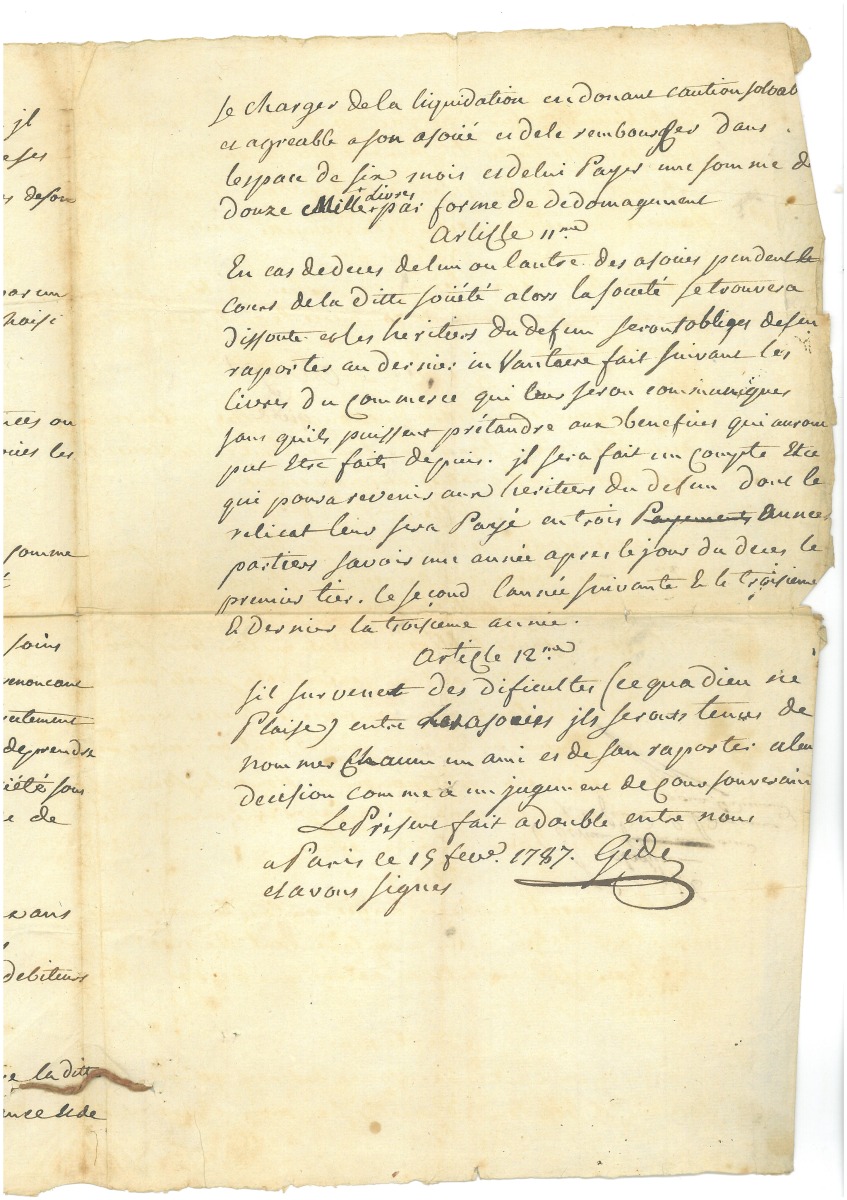 jl
eses
s deson
par un
hoisi
nces ou
ciés les
somme
soins
renoncant
deprendre
ciété sous
e de
x ans
debiteurs
re la ditte
ence & de
se charger de la liquidation en donant caution solvab
et agreable a son asoiié et de le rembourser dans
lespace de six mois et de lui Payer une somme de
douze Mille Livres par forme de dedomagement
Article 11me
En cas de deces de lun ou lautre des asoiies pendent le
cours de la Ditte soiiété alors la societé se trouvera
dissoute et les heritiers du defun seront obliges desen
raporter au dernier in Vantaire fait suivant les
livres du Commerce qui leur seron communiqués
sans quils puissent prétandre aux benefices qui auront
put Etre faits depuis. jl sera fait un Compte Etce
qui poura revenir aux heritiers du defun dont le
relicat leur sera Payé en trois Payements Annees
partiers savoir une année apres le jour du deces le
premier tier. le second lannée suivante & le troisieme
& Dernier la troisieme année.
Article 12me
sil survenet des dificultes (ce qua dieu ne
Plaise) entre les asociés jls seront tenus de
nommer Chacun un ami et de san raporter a leu
decision comme à un jugement de Cour souverain
Le Présent fait a double entre nous
a Paris le 15 fevr. 1787. Gide
et avons signes